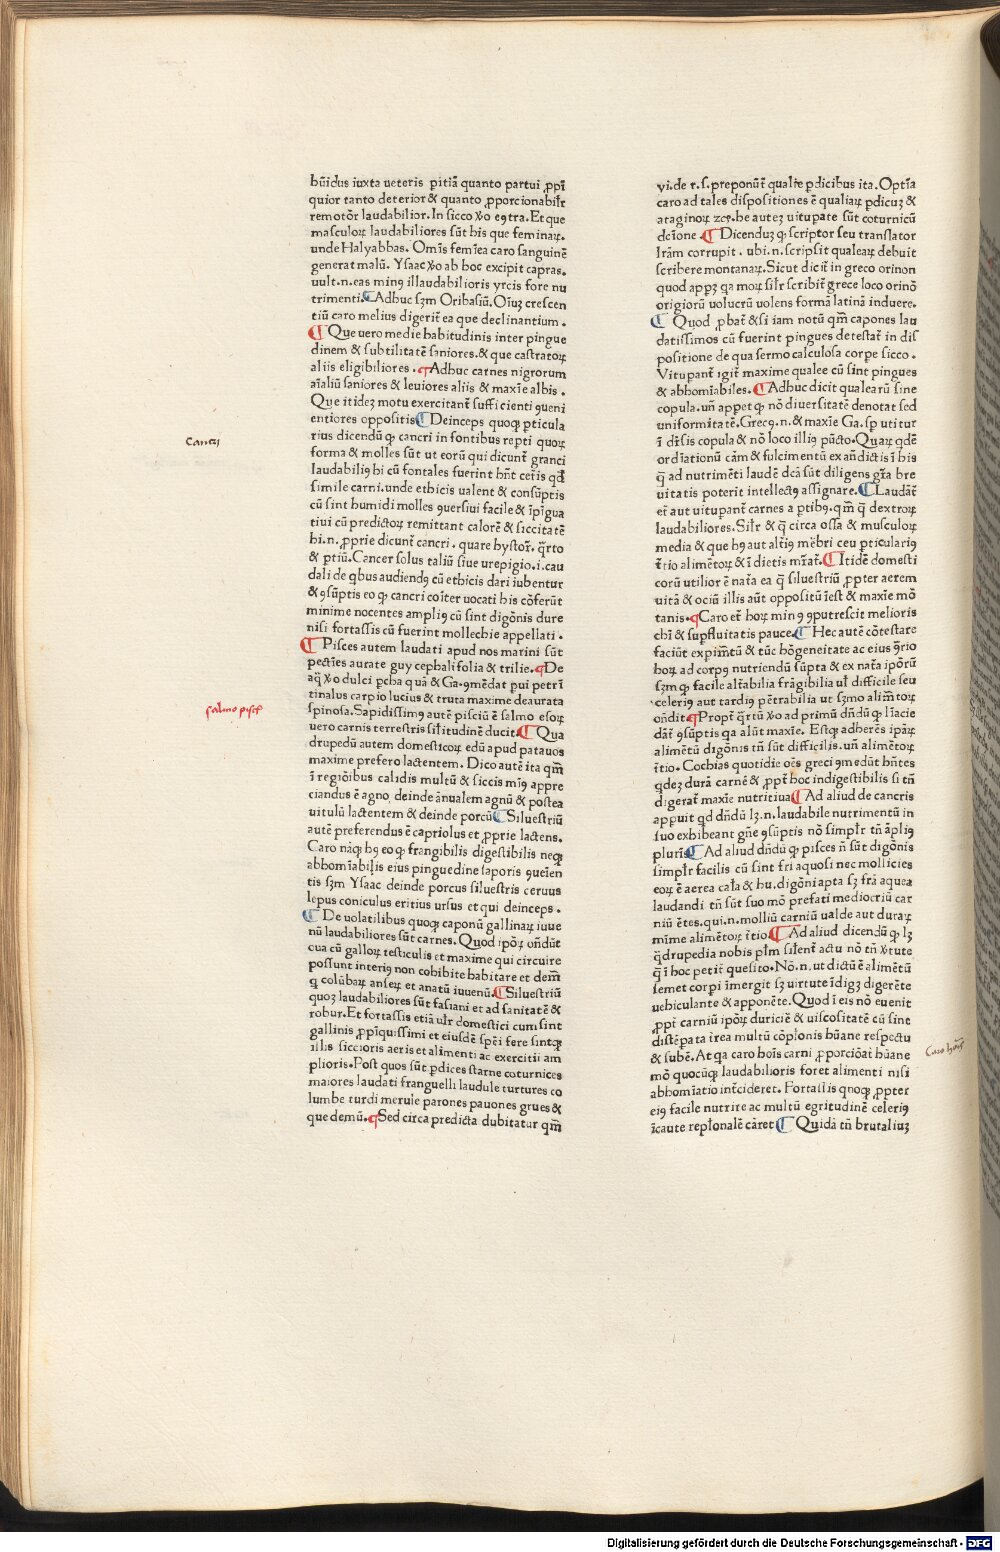 būidus iuxta ueteris pitiā quanto partui ꝓpī
quior tanto deterior & quanto ꝓporcionabilr
remotōr laudabilior. In sicco ꝟo e9tra. Et que
masculoꝝ laudabiliores sūt his que feminaꝝ.
unde Halyabbas. Omīs femīea caro sanguinē
generat malū. Ysaac ꝟo ab hoc excipit capras.
uult.n.eas min9 illaudabilioris yrcis fore nu
trimenti. Adhuc sꝫm Oribasiū. Oīuꝫ crescen
tiū caro melius digerit̄ ea que declinantium.
Que uero medie habitudinis inter pingue
dinem & subtilitatē saniores. & que castratoꝝ
aliis eligibiliores. Adhuc carnes nigrorum
aīaliū saniores & leuiores aliis & maxīe albis.
Que itideꝫ motu exercitant̄ sufficienti 9ueni
entiores oppositis Deinceps quoqꝫ ꝑticula
rius dicendū ꝙ cancri in fontibus reꝑti quoꝝ
forma & molles sūt ut eorū qui dicunt̄ granci
laudabili9 hi cū fontales fuerint hn̄t cet̄is qd̄
simile carni. unde ethicis ualent & consūptis
cū sint humidi molles 9uersiui facile & īpīgua
tiui cū predictoꝝ remittant calorē & siccitatē
hi.n.ꝓprie dicunt̄ cancri. quare hystoꝝ. q̄rto
& ꝑtiū. Cancer solus taliū siue urepigio.i.cau
dali de qbus audiend9 cū ethicis dari iubentur
& 9sūptis eo ꝙ cancri coīter uocati his cōferūt
minime nocentes ampli9 cū sint digōnis dure
nisi fortassis cū fuerint mollechie appellati.
Pisces autem laudati apud nos marini sūt
pectīes aurate guy cephali folia & trilie. De
aq̄ ꝟo dulci ꝑcha quā & Ga.9mēdat pui petrī
tinalus carpio lucius & truta maxime deaurata
spinosa. Sapidissim9 autē pisciū ē salmo esoꝝ
uero carnis terrestris silitudinē ducit Qua
drupedū autem domesticoꝝ edū apud patauos
maxime prefero lactentem. Dico autē ita qm̄
ī regiōibus calidis multū & siccis mī9 appre
ciandus ē agno, deinde ānualem agnū & postea
uitulū lactentem & deinde porcū Siluestriū
autē preferendus ē capriolus et ꝓprie lactens.
Caro nāqꝫ h9 eo ꝙ frangibilis digestibilis neqꝫ
abbomīabilis eius pinguedine saporis 9ueiēn
tis sꝫm Ysaac deinde porcus siluestris ceruus
lepus coniculus eritius ursus et qui deinceps.
De uolatilibus quoqꝫ caponū gallinaꝝ iuue
nū laudabiliores sūt carnes. Quod ipōꝝ on̄dūt
cua cū galloꝝ testiculis et maxime qui circuire
possunt interi9 non cohibite habitare et dem̄
ꝙ colūbaꝝ anseꝝ et anatū iuuenū. Siluestriū
quoꝫ laudabiliores sūt fasiani et ad sanitatē &
robur. Et fortassis etiā ulr domestici cum sint
gallinis ꝓpīquissimi et eiusdē spēi fere sintqꝫ
illis siccioris aeris et alimenti ac exercitii am
plioris. Post quos sūt ꝑdices starne coturnices
maiores laudati franguelli laudule turtures co
lumbe turdi merule parones pauones grues &
que demū. Sed circa predicta dubitatur qm̄
Cancri
salmo pisc̄
vi.de r.s.preponūt̄ qualīe ꝑdicibus ita. Optīa
caro ad tales dispositiones ē qualiaꝝ ꝑdicuꝫ &
ataginoꝝ ⁊c̄. be auteꝫ uitupate sūt coturnicū
dc̄ione. Dicenduꝫ ꝙ scriptor seu translator
lr̄am corrupit. ubi.n.scripsit qualeaꝝ debuit
scribere montanaꝝ. Sicut dicit̄ in greco orinon
quod appꝫ qa moꝝ silr scribit̄ grece loco orinō
origiorū uolucrū uolens formā latinā induere.
Quod ꝓbat̄ & si iam notū qm̄ capones lau
datissimos cū fuerint pingues detestat̄ in dis
positione de qua sermo calculosa corpe sicco.
Vitupant̄ igit̄ maxime qualee cū sint pingues
& abbomīabiles. Adhuc dicit qualearū sine
copula. un̄ appet ꝙ nō diuersitatē denotat sed
uniformitatē. Grec9.n.& maxīe Ga. sp utitur
ī dc̄īsis copula & nō loco illi9 pūcto. Quaꝝ qdē
ordīationū cām & fulcimentū ex an̄dictis ī his
q̄ ad nutrimēti laudē dcā sūt diligens gr̄a bre
uitatis poterit intellect9 assignare. Laudāt̄
et̄ aut uituparit̄ carnes a ꝑtib9. qm̄ q̄ dextroꝝ
laudabiliores. Silr & q̄ circa ossa & musculoꝝ
media & que h9 aut alt̄i9 mēbri ceu ꝑticulari9
t̄tio alimētoꝝ & ī dietis mr̄at̄. Itidē domesti
corū utilior ē nat̄a ea q̄ siluestriū ꝓpter aerem
uitā & ociū illis aūt oppositū īest & maxīe mō
tanis. Caro et̄ hoꝝ min9 9putrescit melioris
chī & supfluitatis pauce. Hec autē cōtestare
faciūt expim̄tū & tūc hōgeneitate ac eius 9̄rio
hoꝝ ad corp9 nutriendū sūpta & ex nat̄a ipōrū
sꝫm ꝙ facile alt̄abilia frāgibilia ul̄ difficile seu
celeri9 aut tardi9 pēt̄rabilia ut sꝫmo alim̄toꝝ
on̄dit Propt̄ q̄rtū ꝟo ad primū dn̄dū ꝙ līacie
dāt̄ 9sūptis qa alūt maxīe. Estqꝫ adherēs ipāꝝ
alimētū digōnis tn̄ sūt difficilis. un̄ alimētoꝝ
t̄tio. Cochias quotidie oēs greci 9medūt hn̄tes
qdeꝫ durā carnē & ꝓpt̄ hoc indigestibilis si tn̄
digerat̄ maxīe nutritiua Ad aliud de cancris
appuit qd dn̄dū lꝫ.n.laudabile nutrimentū in
suo exhibeant gn̄e 9sūptis nō simplr tn̄ āpli9
plurīs Ad aliud dn̄dū ꝙ pisces n̄ sūt digōnis
simplr facilis cū sint fri aquosi nec mollicies
eoꝝ ē aerea cal̄a & hu. digōni apta sꝫ fr̄a aquea
laudandi tn̄ sūt suo mō prefati mediocriū car
niū ētes. qui.n.molliū carniū ualde aut duraꝝ
mīme alimētoꝝ t̄tio Ad aliud dicendū ꝙ lꝫ
q̄drupedia nobis plm̄ silent̄ actu nō tn̄ ꝟtute
q̄ ī hoc petit̄ quesito. Nō.n.ut dictū ē alimētū
semet corpi īmergit sꝫ uirtute īdigꝫ digerēte
uehiculante & apponēte. Quod ī eis nō euenit
ꝓpt̄ carniū ipōꝝ duriciē & uiscositatē cū sint
distēpata t̄rea multū cōplōnis hūane respectu
& subē. At qa caro hoīs carni ꝓporciōat̄ hūane
mō quocūqꝫ laudabilioris foret alimenti nisi
abbomīatio int̄cideret. Fortassis qnoqꝫ ꝓpter
ei9 facile nutrire ac multū egritudinē celeri9
īcaute replōnalē cāret Quidā tn̄ brutaliuꝫ
Caro hoīs
Digitalisierung gefördert durch die Deutsche Forschungsgemeinschaft - DFG